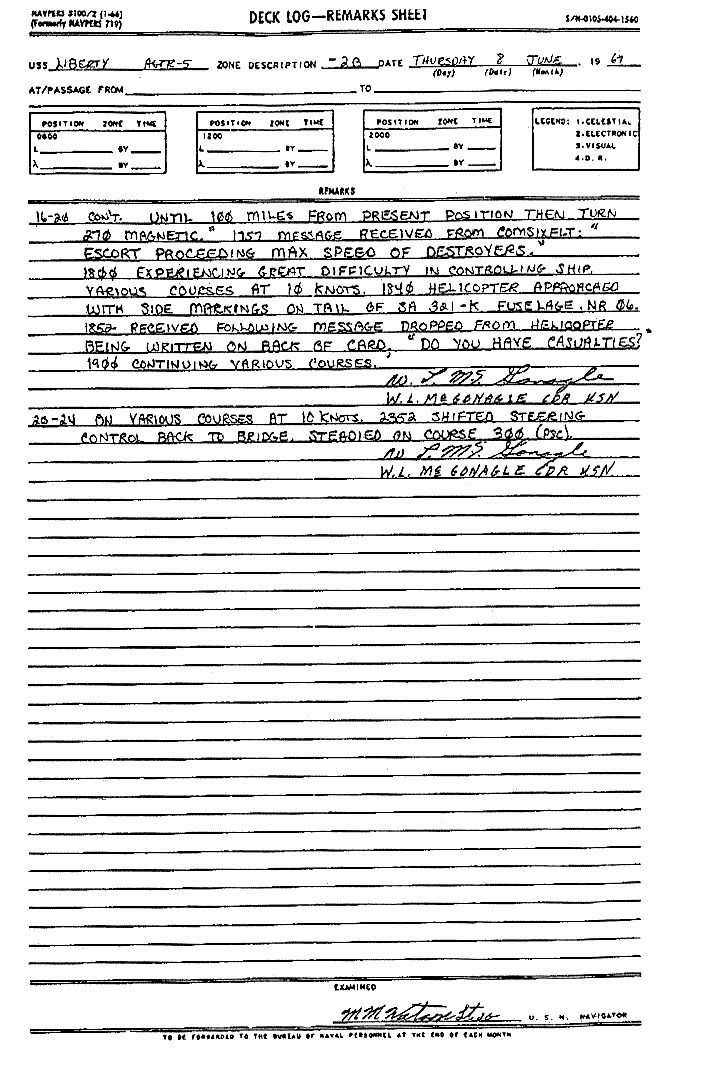 NAVPERS 3100/2 (1-66)
(Formerly NAVPERS 719)
DECK LOG—REMARKS SHEET
S/N-0105-404-1560
USS LIBERTY AGTR-5 ZONE DESCRIPTION -2B DATE THURSDAY 8 JUNE, 19 67
(Day) (Date) (Month)
AT/PASSAGE FROM TO
POSITION ZONE TIME
0800
L BY
λ BY
POSITION ZONE TIME
1200
L BY
λ BY
POSITION ZONE TIME
2000
L BY
λ BY
LEGEND: 1-CELESTIAL
2-ELECTRONIC
3-VISUAL
4-D. R.
REMARKS
16-20 CON'T. UNTIL 100 MILES FROM PRESENT POSITION THEN TURN
270 MAGNETIC." 1757 MESSAGE RECEIVED FROM COMSIXFLT: "
ESCORT PROCEEDING MAX SPEED OF DESTROYERS."
1800 EXPERIENCING GREAT DIFFICULTY IN CONTROLLING SHIP.
VARIOUS COURSES AT 10 KNOTS. 1840 HELICOPTER APPROACHED
WITH SIDE MARKINGS ON TAIL OF SA 321-K FUSELAGE. NR 06.
1852 RECEIVED FOLLOWING MESSAGE DROPPED FROM HELICOPTER
BEING WRITTEN ON BACK OF CARD, "DO YOU HAVE CASUALTIES?"
1900 CONTINUING VARIOUS COURSES.
W. L. McGonagle
W.L. MCGONAGLE CDR USN
20-24 ON VARIOUS COURSES AT 10 KNOTS. 2352 SHIFTED STEERING
CONTROL BACK TO BRIDGE. STEADIED ON COURSE 300 (PSC).
W. L. McGonagle
W.L. MCGONAGLE CDR USN
EXAMINED
U. S. N. NAVIGATOR
TO BE FORWARDED TO THE BUREAU OF NAVAL PERSONNEL AT THE END OF EACH MONTH